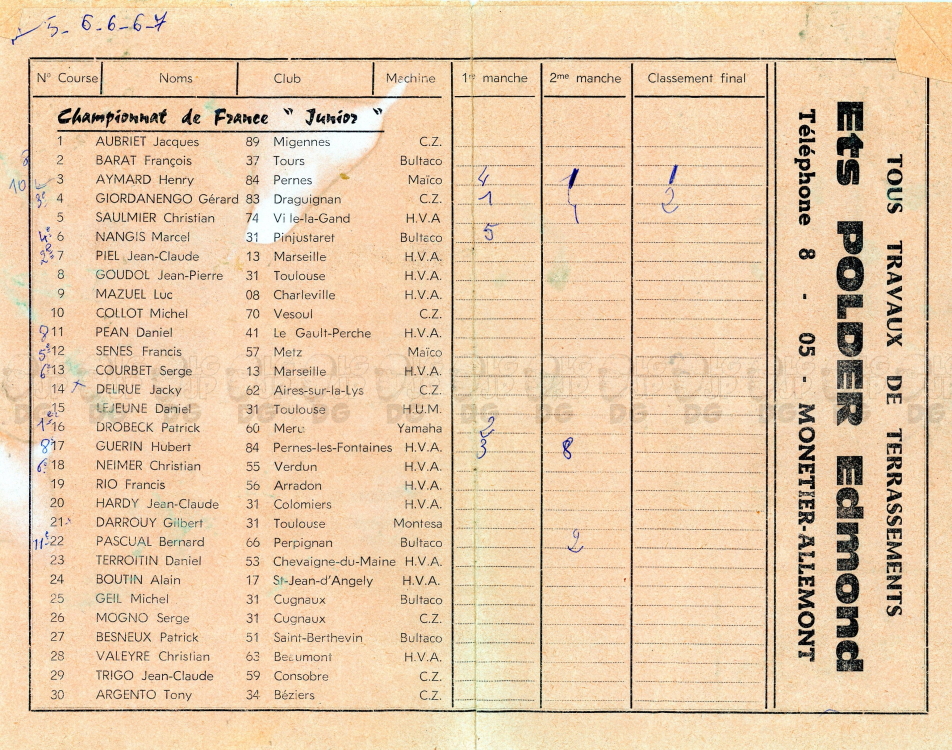 5-6-6-6-7
N° Course Noms Club Machine 1re manche 2me manche Classement final
Championnat de France " Junior "
1 AUBRIET Jacques 89 Migennes C.Z.
2 BARAT François 37 Tours Bultaco
10 3 AYMARD Henry 84 Pernes Maïco 4 1 1
3e 4 GIORDANENGO Gérard 83 Draguignan C.Z. 1 4 2
5 SAULMIER Christian 74 Vi le-la-Gand H.V.A 
4e 6 NANGIS Marcel 31 Pinjustaret Bultaco 5
2e 7 PIEL Jean-Claude 13 Marseille H.V.A.
8 GOUDOL Jean-Pierre 31 Toulouse H.V.A.
9 MAZUEL Luc 08 Charleville H.V.A.
10 COLLOT Michel 70 Vesoul C.Z.
8 11 PEAN Daniel 41 Le Gault-Perche H.V.A.
5e 12 SENES Francis 57 Metz Maïco
6e 13 COURBET Serge 13 Marseille H.V.A.
14 DELRUE Jacky 62 Aires-sur-la-Lys C.Z.
15 LEJEUNE Daniel 31 Toulouse H.U.M.
1er 16 DROBECK Patrick 60 Meru Yamaha 2
8e 17 GUERIN Hubert 84 Pernes-les-Fontaines H.V.A. 3 8
6e 18 NEIMER Christian 55 Verdun H.V.A.
19 RIO Francis 56 Arradon H.V.A.
20 HARDY Jean-Claude 31 Colomiers H.V.A.
21 DARROUY Gilbert 31 Toulouse Montesa
11e 22 PASCUAL Bernard 66 Perpignan Bultaco 2
23 TERROITIN Daniel 53 Chevaigne-du-Maine H.V.A.
24 BOUTIN Alain 17 St-Jean-d'Angely H.V.A.
25 GEIL Michel 31 Cugnaux Bultaco
26 MOGNO Serge 31 Cugnaux C.Z.
27 BESNEUX Patrick 51 Saint-Berthevin Bultaco
28 VALEYRE Christian 63 Beaumont H.V.A.
29 TRIGO Jean-Claude 59 Consobre C.Z.
30 ARGENTO Tony 34 Béziers C.Z.
TOUS TRAVAUX DE TERRASSEMENTS
Ets POLDER Edmond
Téléphone 8 - 05 - MONETIER-ALLEMONT
DG DG DG DG DG DG DG DG DG DG